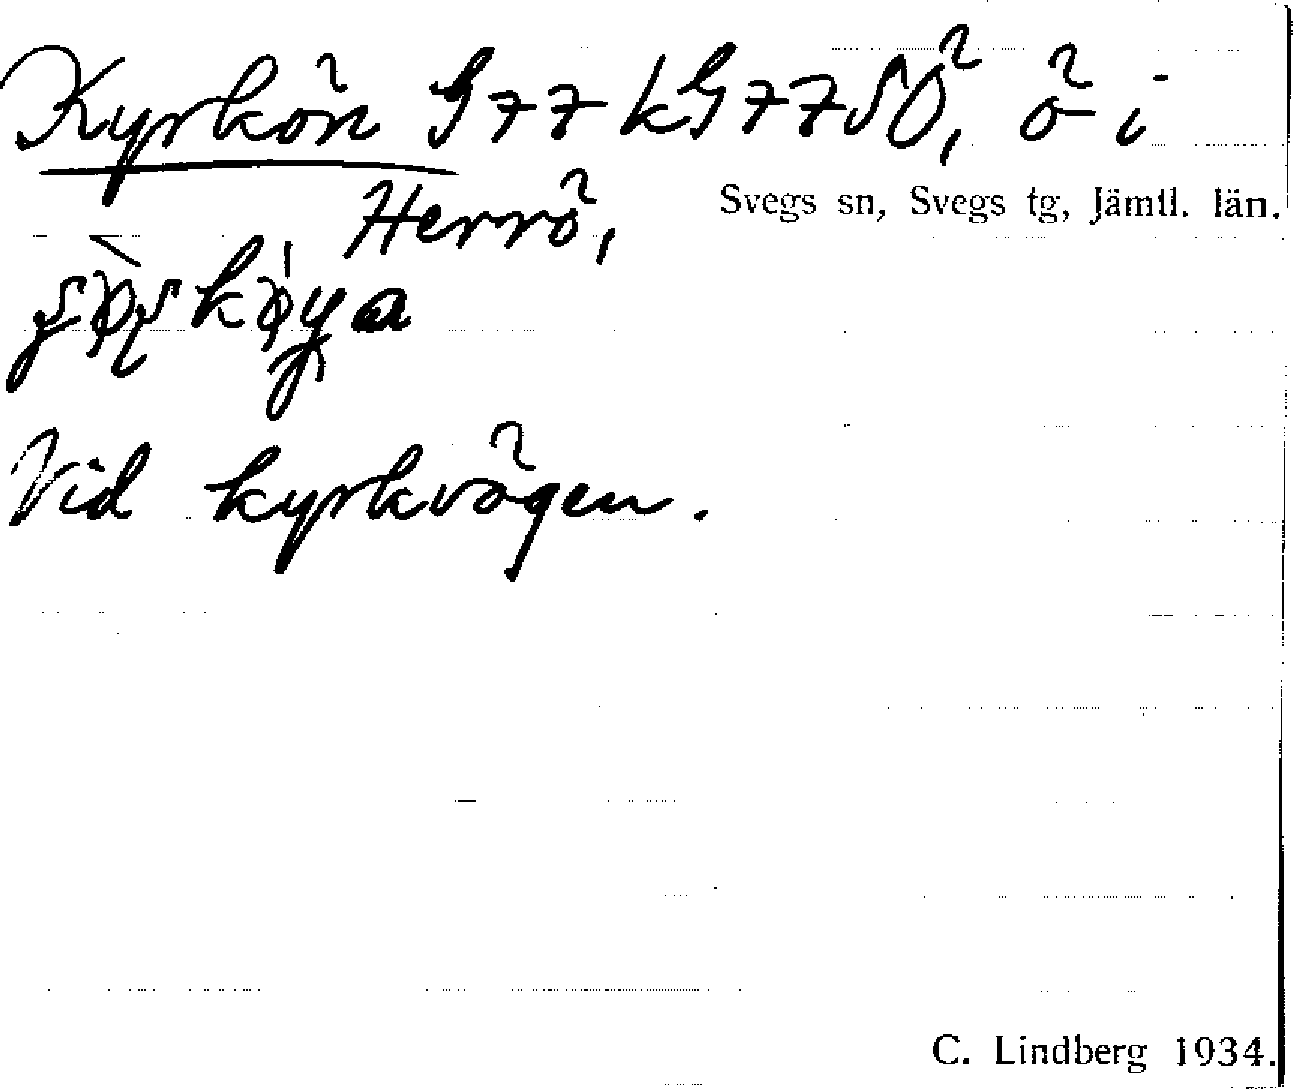 Kyrkön G77kG77SÖ, ö i
Svegs sn, Svegs tg, Jämtl. län.
Herrö,
Vid kyrkvägen.
C. Lindberg 1934.